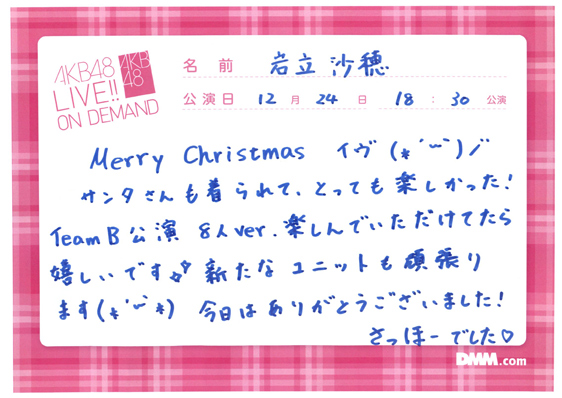 AKB48
LIVE!!
ON DEMAND
AKB
48
名前 岩立沙穂
公演日 12月24日 18:30公演
Merry Christmas イヴ (*´︶`)ノ
サンタさんも着られて、とっても楽しかった!
Team B 公演 8人ver.楽しんでいただけてたら
嬉しいです 新たなユニットも頑張り
ます(*´︶`*) 今日はありがとうございました!
さっほーでした♡
DMM.com